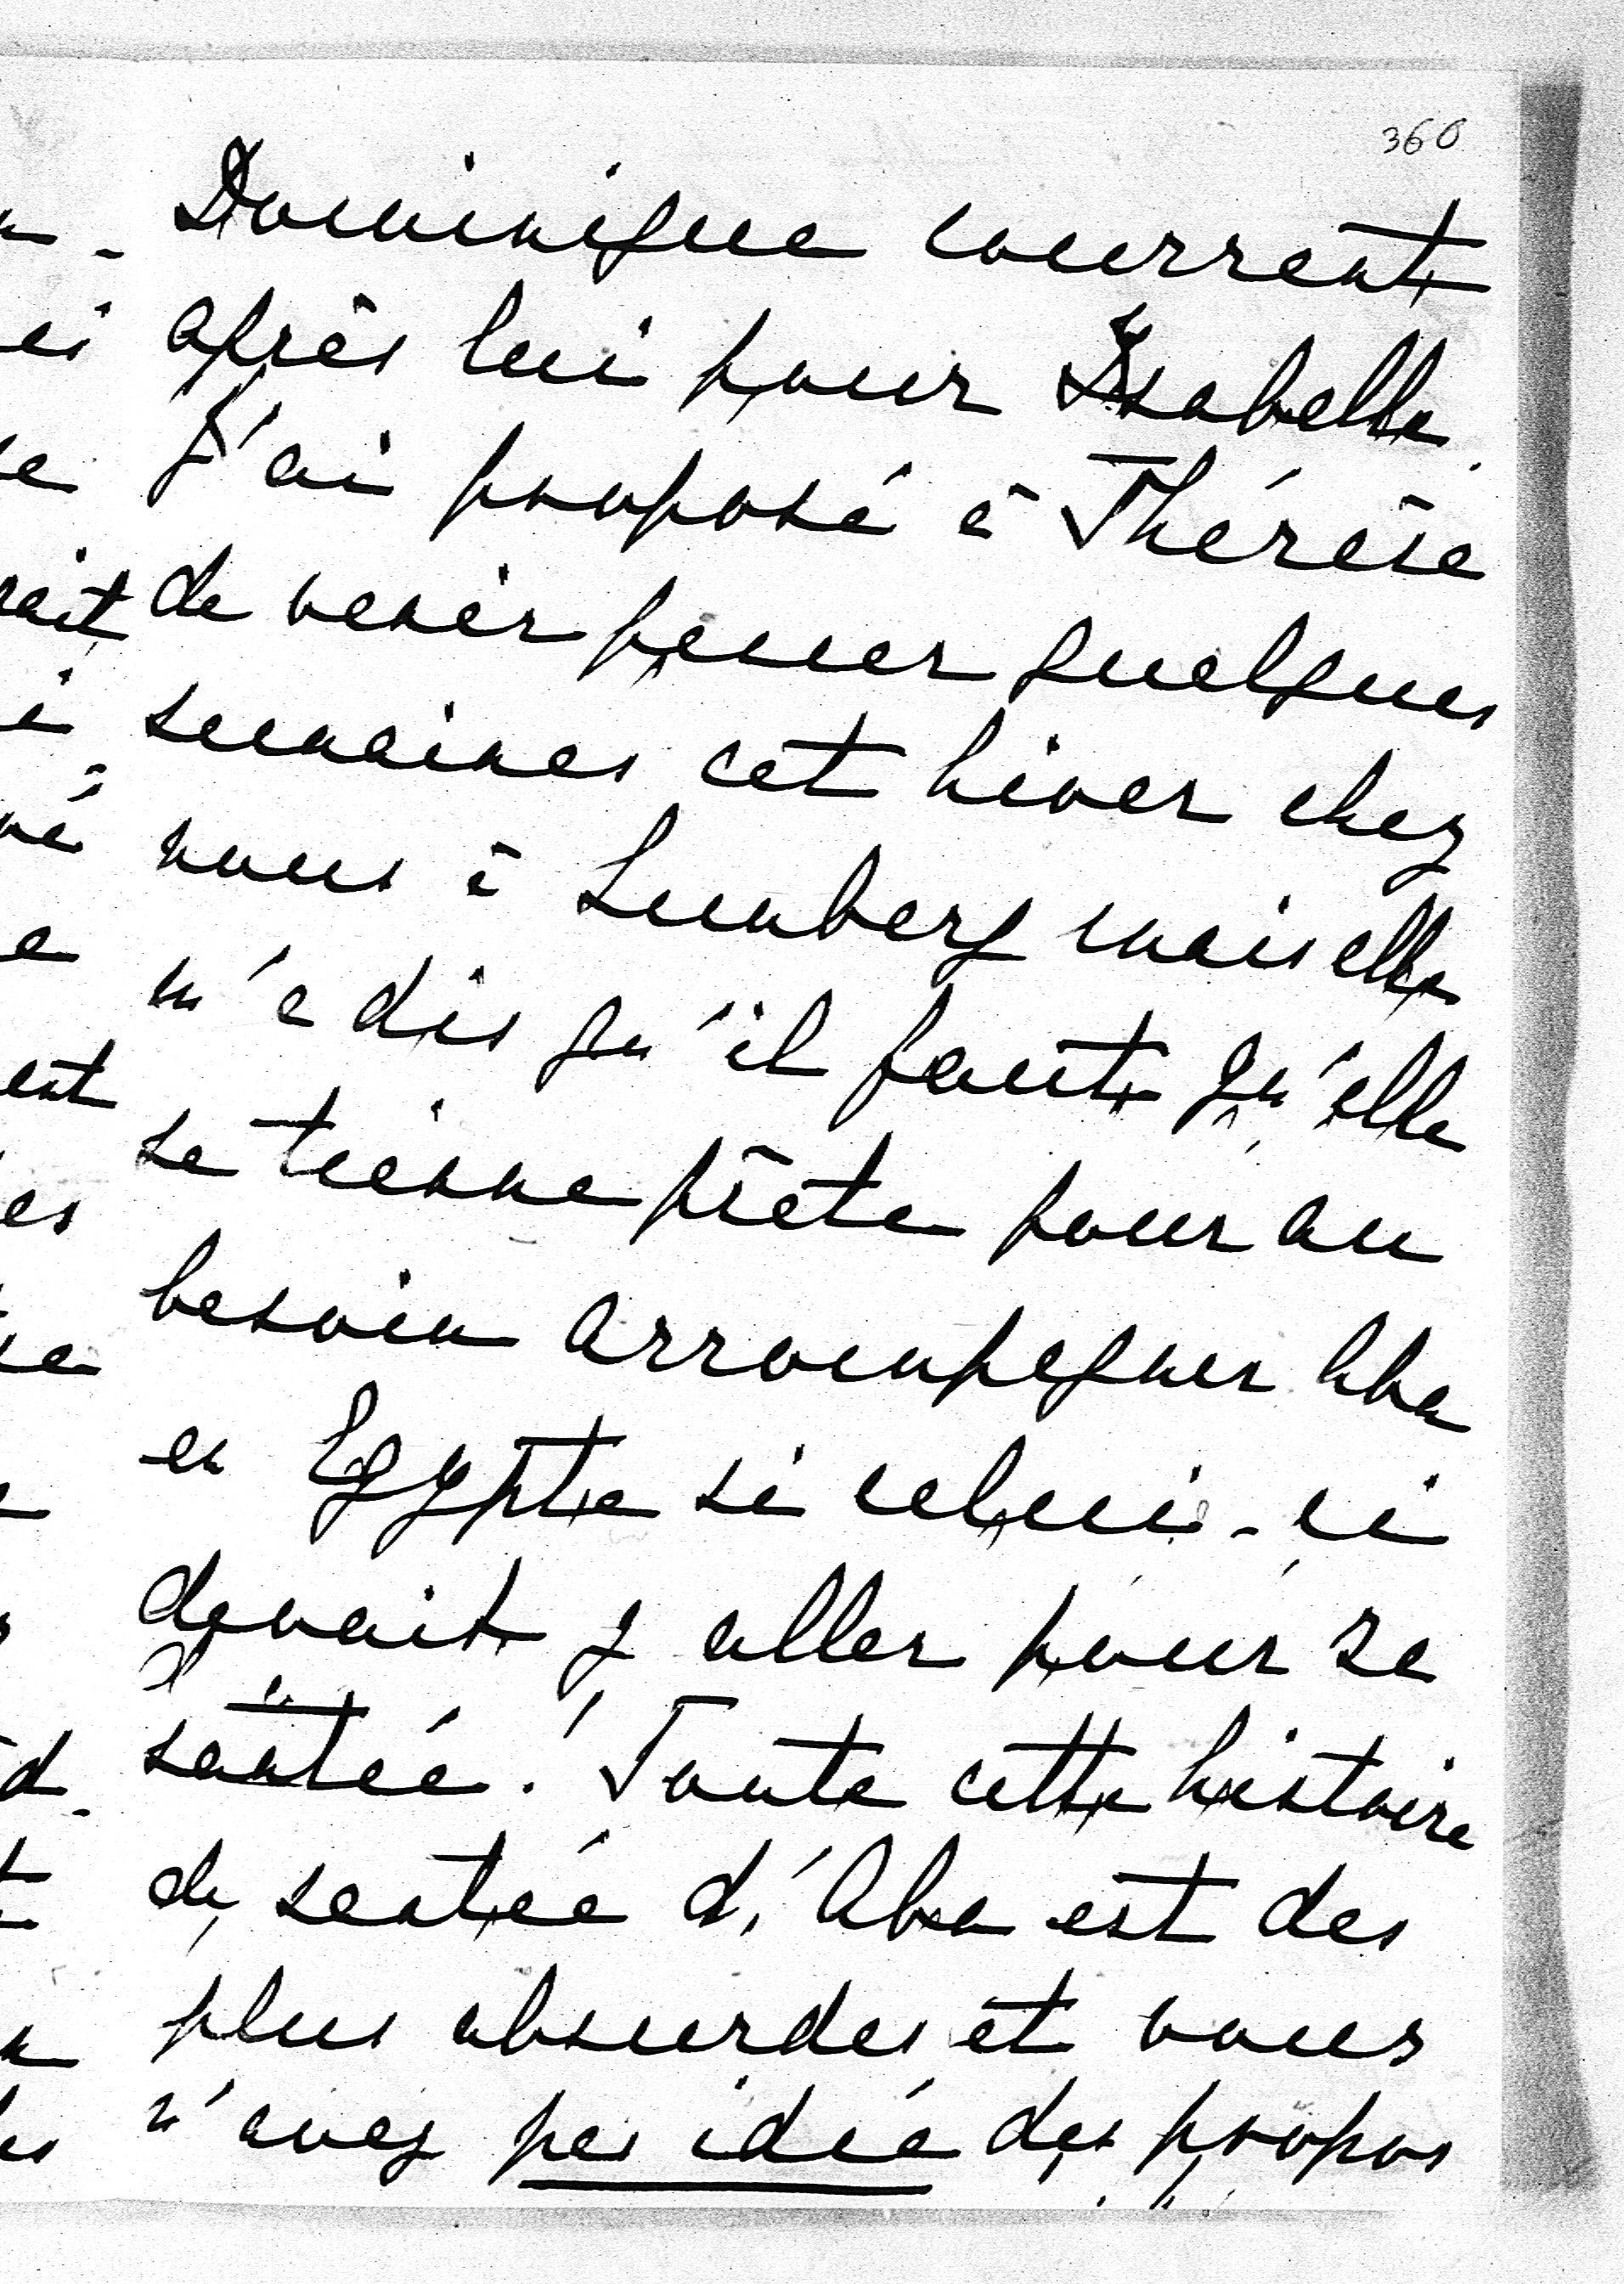 360
Dominique courrent
après lui pour Isabelle.
J'ai proposé à Thérèse
de venir passer quelques
semaines cet hiver chez
nous à Lemberg mais elle
m'a dis qu'il faut qu'elle
se tienne prête pour au
besoin accompagner Aba
en Egypte si celui-ci
devait y aller pour sa
santée! Toute cette histoire
de santée d'Aba est des
plus absurdes et vous
n'avez pas idée des propos